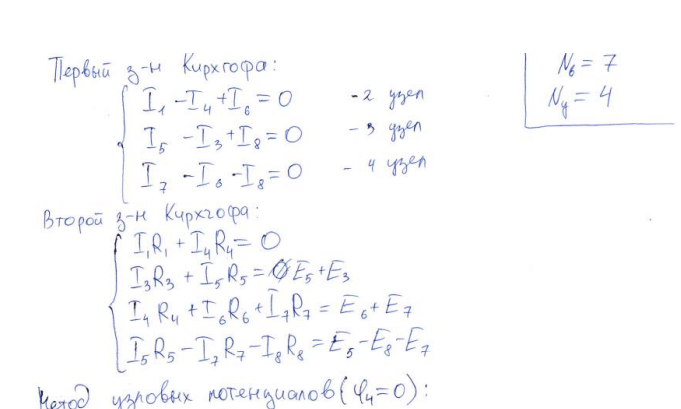 Первый з-н Кирхгофа:
I₁ - I₄ + I₆ = 0 - 2 узел
I₅ - I₃ + I₈ = 0 - 3 узел
I₇ - I₆ - I₈ = 0 - 4 узел
Nв = 7
Nу = 4
Второй з-н Кирхгофа:
I₁R₁ + I₄R₄ = 0
I₃R₃ + I₅R₅ = E₅ + E₃
I₄R₄ + I₆R₆ + I₇R₇ = E₆ + E₇
I₅R₅ - I₇R₇ - I₈R₈ = E₅ - E₈ - E₇
Метод узловых потенциалов (φ₄ = 0):